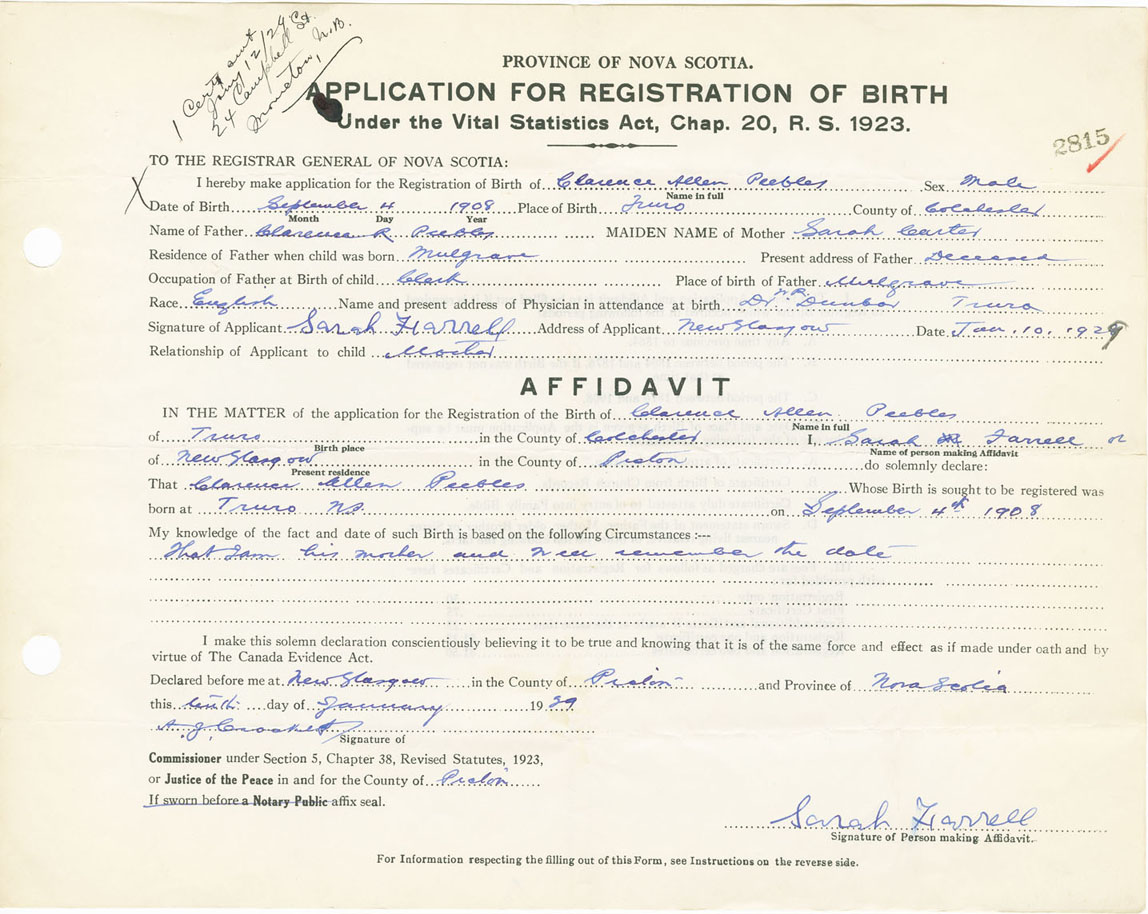 1 Cert sent
Jany 12/29
24 Campbell St.
Moncton, N.B.
PROVINCE OF NOVA SCOTIA.
APPLICATION FOR REGISTRATION OF BIRTH
Under the Vital Statistics Act, Chap. 20, R. S. 1923.
2815
TO THE REGISTRAR GENERAL OF NOVA SCOTIA:
X I hereby make application for the Registration of Birth of Clarence Allen Peebles Sex Male
Name in full
Date of Birth September 4 1908 Place of Birth Truro County of Colchester
Month Day Year
Name of Father Clarence R Peebles MAIDEN NAME of Mother Sarah Carter
Residence of Father when child was born Mulgrave Present address of Father Deceased
Occupation of Father at Birth of child Clerk Place of birth of Father Mulgrave
Race English Name and present address of Physician in attendance at birth Dr. Dunbar Truro
Signature of Applicant Sarah Farrell Address of Applicant New Glasgow Date Jan. 10. 1929
Relationship of Applicant to child Mother
AFFIDAVIT
IN THE MATTER of the application for the Registration of the Birth of Clarence Allen Peebles
Name in full
of Truro in the County of Colchester I, Sarah Farrell
Birth place Name of person making Affidavit
of New Glasgow in the County of Pictou do solemnly declare:
Present residence
That Clarence Allen Peebles Whose Birth is sought to be registered was
born at Truro NS. on September 4th 1908
My knowledge of the fact and date of such Birth is based on the following Circumstances :---
That I am his mother and well remember the date
I make this solemn declaration conscientiously believing it to be true and knowing that it is of the same force and effect as if made under oath and by
virtue of The Canada Evidence Act.
Declared before me at New Glasgow in the County of Pictou and Province of Nova Scotia
this tenth day of January 1929
A. J. Crockett
Signature of
Commissioner under Section 5, Chapter 38, Revised Statutes, 1923,
or Justice of the Peace in and for the County of Pictou
If sworn before a Notary Public affix seal.
Sarah Farrell
Signature of Person making Affidavit.
For Information respecting the filling out of this Form, see Instructions on the reverse side.